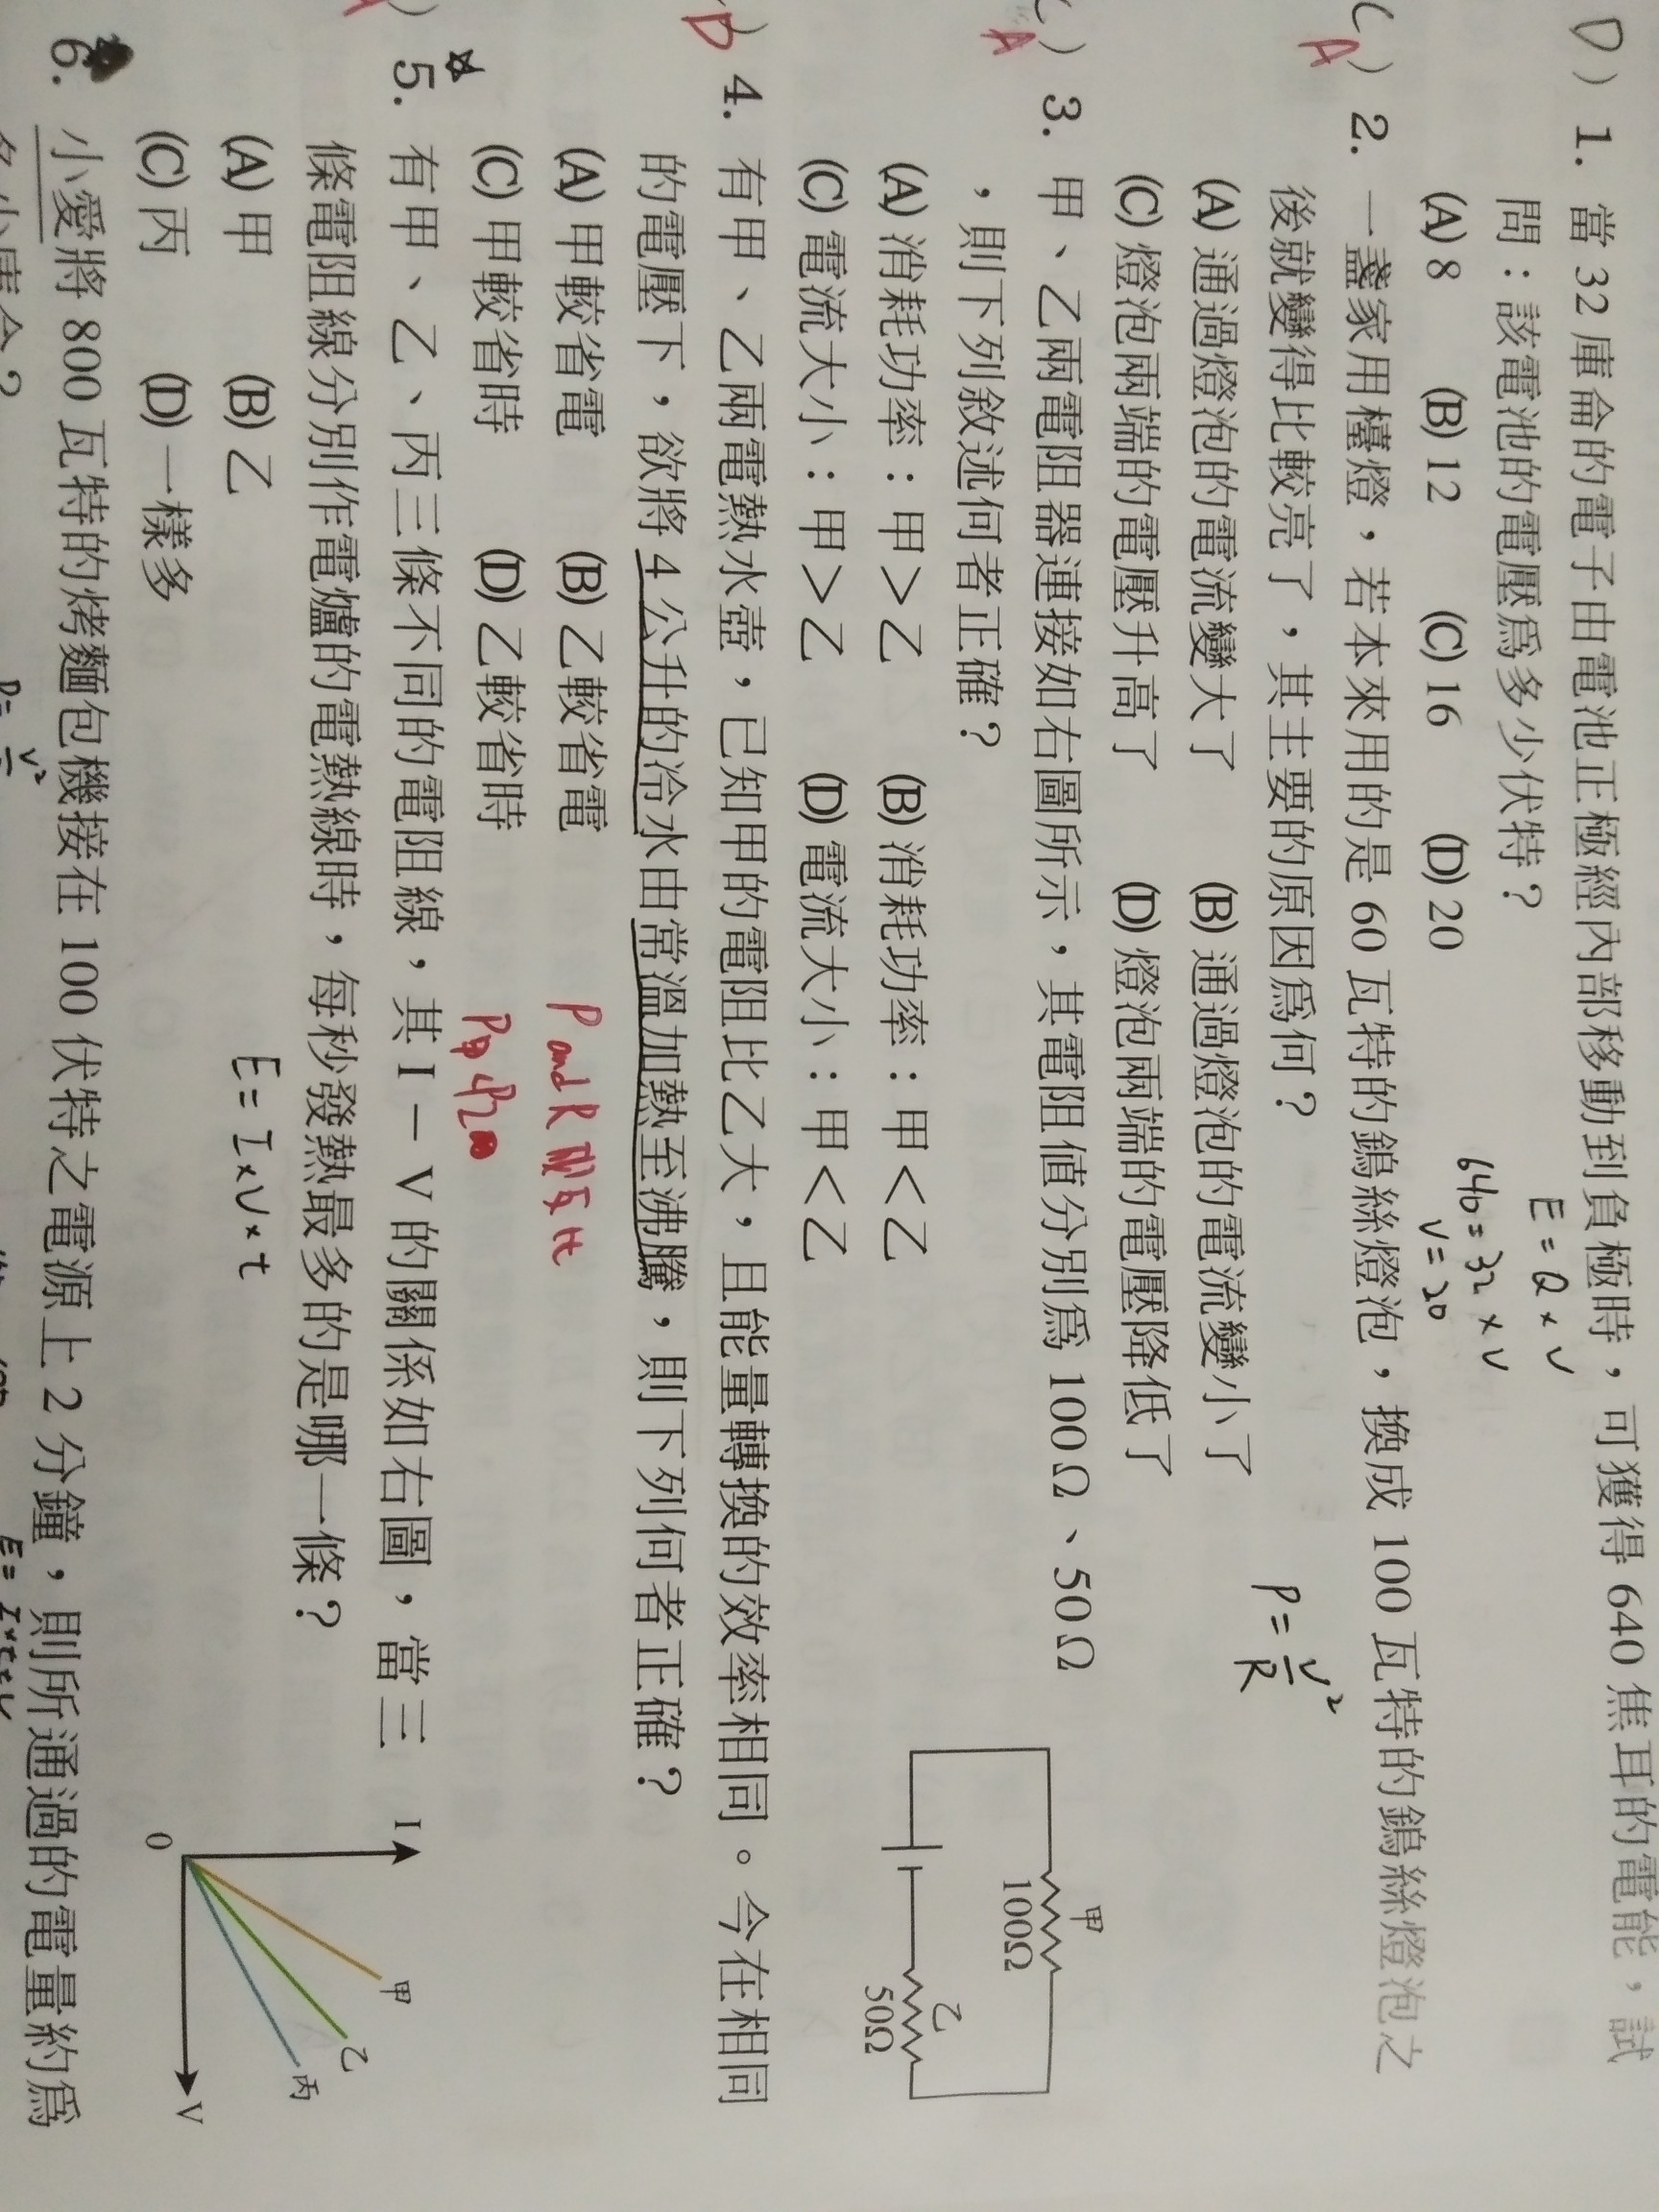 D) 1. 當 32 庫侖的電子由電池正極經內部移動到負極時，可獲得 640 焦耳的電能，試
問：該電池的電壓為多少伏特？
E = Q × V
(A) 8 (B) 12 (C) 16 (D) 20
640 = 32 × V
V = 20
C A) 2. 一盞家用檯燈，若本來用的是 60 瓦特的鎢絲燈泡，換成 100 瓦特的鎢絲燈泡之
後就變得比較亮了，其主要的原因為何？
(A) 通過燈泡的電流變大了 (B) 通過燈泡的電流變小了
P = V²/R
(C) 燈泡兩端的電壓升高了 (D) 燈泡兩端的電壓降低了
C A) 3. 甲、乙兩電阻器連接如右圖所示，其電阻值分別為 100Ω、50Ω
，則下列敘述何者正確？
(A) 消耗功率：甲＞乙 (B) 消耗功率：甲＜乙
(C) 電流大小：甲＞乙 (D) 電流大小：甲＜乙
甲
100Ω
乙
50Ω
D) 4. 有甲、乙兩電熱水壺，已知甲的電阻比乙大，且能量轉換的效率相同。今在相同
的電壓下，欲將 4 公升的冷水由常溫加熱至沸騰，則下列何者正確？
(A) 甲較省電 (B) 乙較省電
P and R
(C) 甲較省時 (D) 乙較省時
A) 5. 有甲、乙、丙三條不同的電阻線，其 I－V 的關係如右圖，當三
條電阻線分別作電爐的電熱線時，每秒發熱最多的是哪一條？
(A) 甲 (B) 乙
E = I × V × t
(C) 丙 (D) 一樣多
I
甲
乙
丙
0
V
6. 小愛將 800 瓦特的烤麵包機接在 100 伏特之電源上 2 分鐘，則所通過的電量約為
多少庫侖？